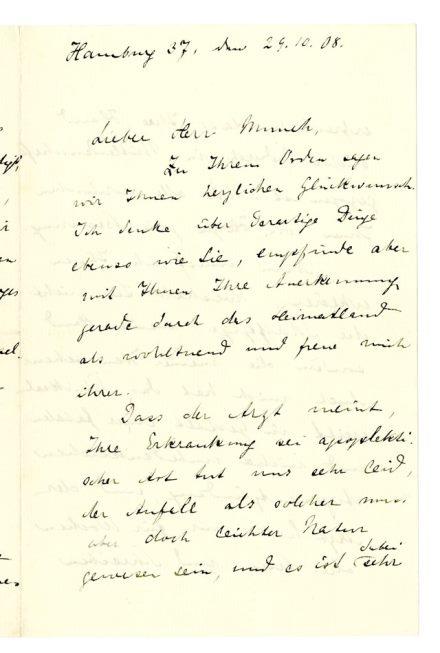 Hamburg 37, den 29.10.08.
Lieber Herr Munch,
Zu Ihrem Orden sagen
wir Ihnen herzlichen Glückwunsch.
Ich denke über derartige Dinge
ebenso wie Sie, empfinde aber
mit Ihnen Ihre Anerkennung
gerade durch das Heimatland
als wohltuend und freue mich
ihrer.
Dass der Arzt meint,
Ihre Erkrankung sei apoplekti-
scher Art tut uns sehr leid,
der Anfall als solcher muss
aber doch leichter Natur
gewesen sein, und es ist dabei sehr